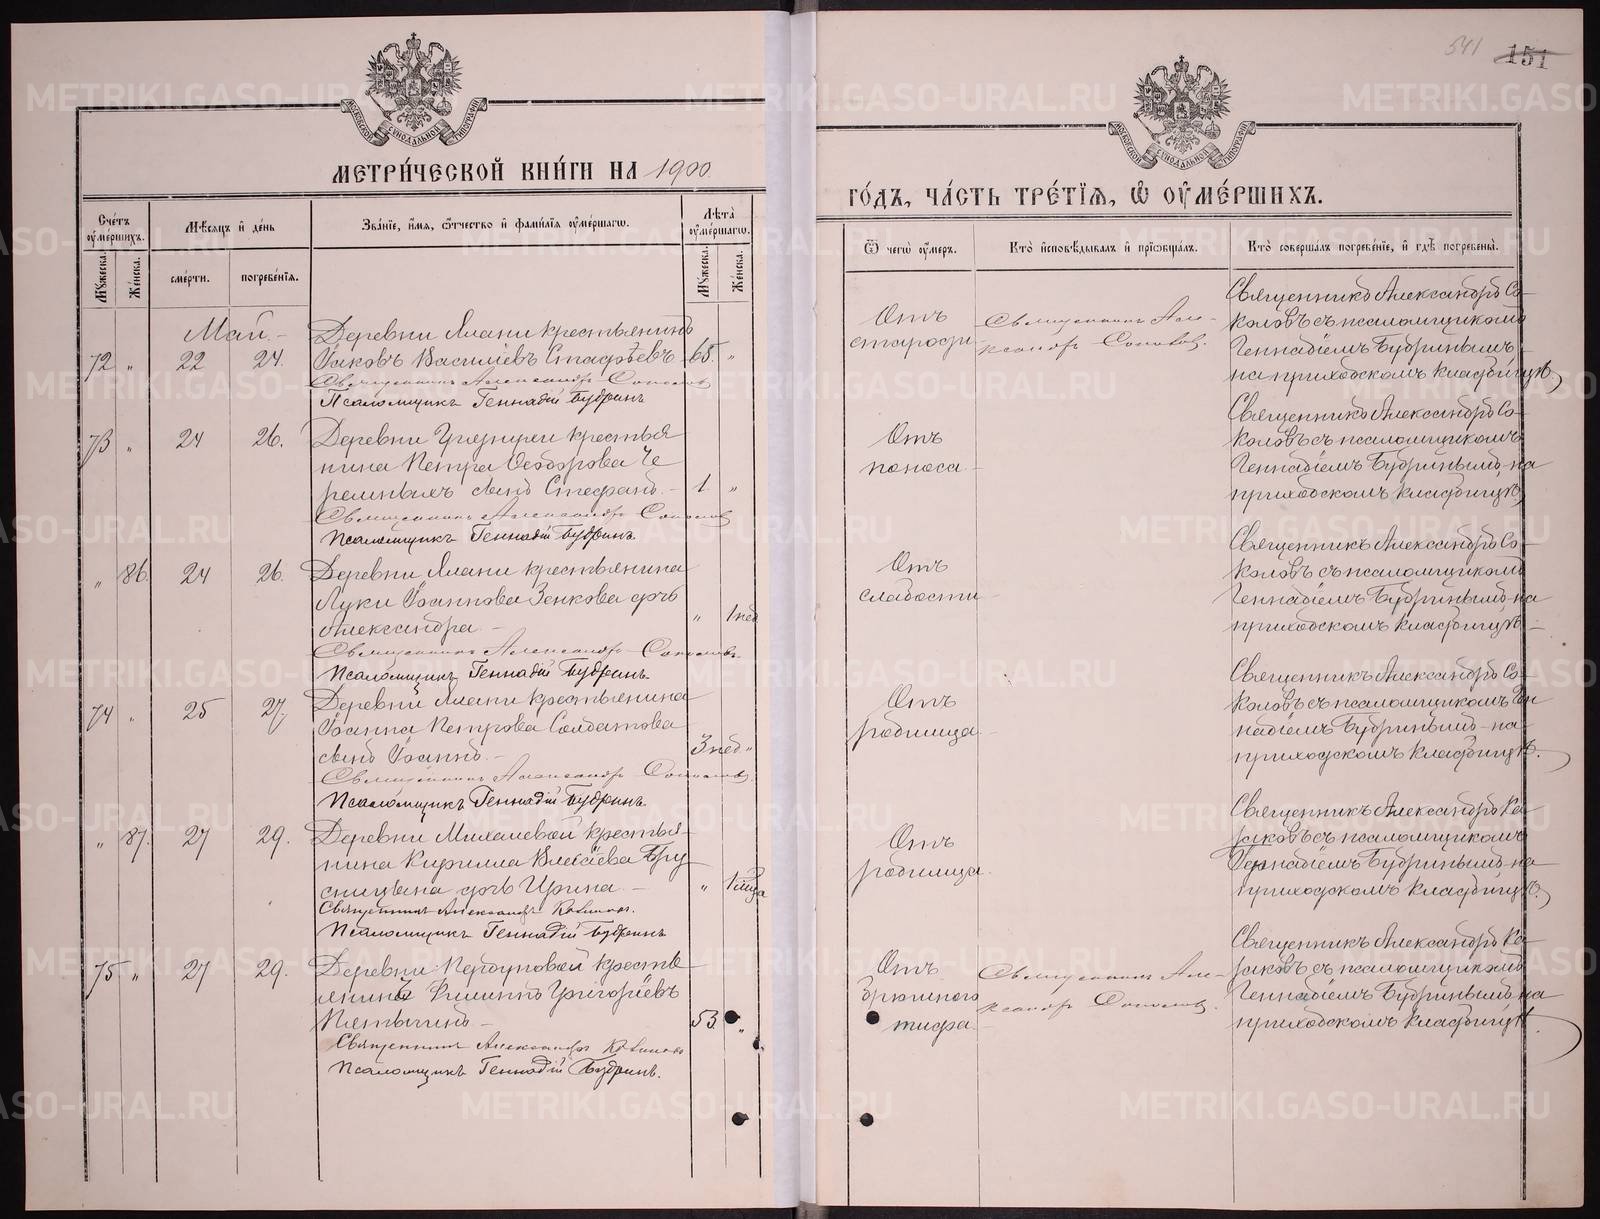 541 151
МЕТРИ́ЧЕСКОЙ КНИ́ГИ НА 1900
ГО́ДЪ, ЧА́СТЬ ТРЕ́ТІѦ, Ѽ ОУ҆МЕ́РШИХЪ.
Сче́тъ оу҆ме́ршихъ.
Мѣ́сяцъ и де́нь
Зва́нїе, и҆́мѧ, ѻ҆́тчество и҆ фами́лїѧ оу҆ме́ршагѡ.
Лѣ́та оу҆ме́ршагѡ.
Ѿ чегѡ̀ оу҆́меръ.
Кто̀ и҆сповѣ́дывалъ и҆ прїѡбща́лъ.
Кто̀ соверша́лъ погребе́нїе, и҆ гдѣ̀ погребены̀.
Му́жеска.
Же́нска.
сме́рти.
погребе́нїѧ.
Му́жеска.
Же́нска.
Май.
Деревни Алани крестьянинъ
72 " 22 24. Іаковъ Василіевъ Стафѣевъ 65. "
Священникъ Александръ Соколовъ
Псаломщикъ Геннадій Будринъ
Отъ
старости
Священникъ Але-
ксандръ Соколовъ.
Священникъ Александръ Со-
коловъ съ псаломщикомъ
Геннадіемъ Будринымъ
на приходскомъ кладбищѣ
73 " 24 26. Деревни крестья
нина Петра Ѳеодорова Че
ремныхъ сынъ Стефанъ. 1. "
Священникъ Александръ Соколовъ
Псаломщикъ Геннадій Будринъ
Отъ
поноса
Священникъ Александръ Со-
коловъ съ псаломщикомъ
Геннадіемъ Будринымъ на
приходскомъ кладбищѣ
" 86. 24 26. Деревни Алани крестьянина
Луки Іоаннова Зенкова дочь
Александра. " 1 нед
Священникъ Александръ Соколовъ
Псаломщикъ Геннадій Будринъ
Отъ
слабости
Священникъ Александръ Со-
коловъ съ псаломщикомъ
Геннадіемъ Будринымъ на
приходскомъ кладбищѣ
74 " 25 27. Деревни Алани крестьянина
Іоанна Петрова Солдатова
сынъ Іоаннъ. 3 нед "
Священникъ Александръ Соколовъ
Псаломщикъ Геннадій Будринъ
Отъ
родимца
Священникъ Александръ Со-
коловъ съ псаломщикомъ Ген
надіемъ Будринымъ на
приходскомъ кладбищѣ.
" 87. 27 29. Деревни Михалевой крестья-
нина Кирилла Алексіева Бру
сницына дочь Ирина. " 1 мѣца
Священникъ Александръ
Псаломщикъ Геннадій Будринъ
Отъ
родимца.
Священникъ Александръ
съ псаломщикомъ
Геннадіемъ Будринымъ на
приходскомъ кладбищѣ.
75 " 27 29. Деревни крестья
янинъ Филиппъ Григоріевъ
53. "
Священникъ Александръ
Псаломщикъ Геннадій Будринъ.
Отъ
брюшного
тифа
Священникъ Але-
ксандръ Соколовъ.
Священникъ Александръ
съ псаломщикомъ
Геннадіемъ Будринымъ на
приходскомъ кладбищѣ
METRIKI.GASO-URAL.RU